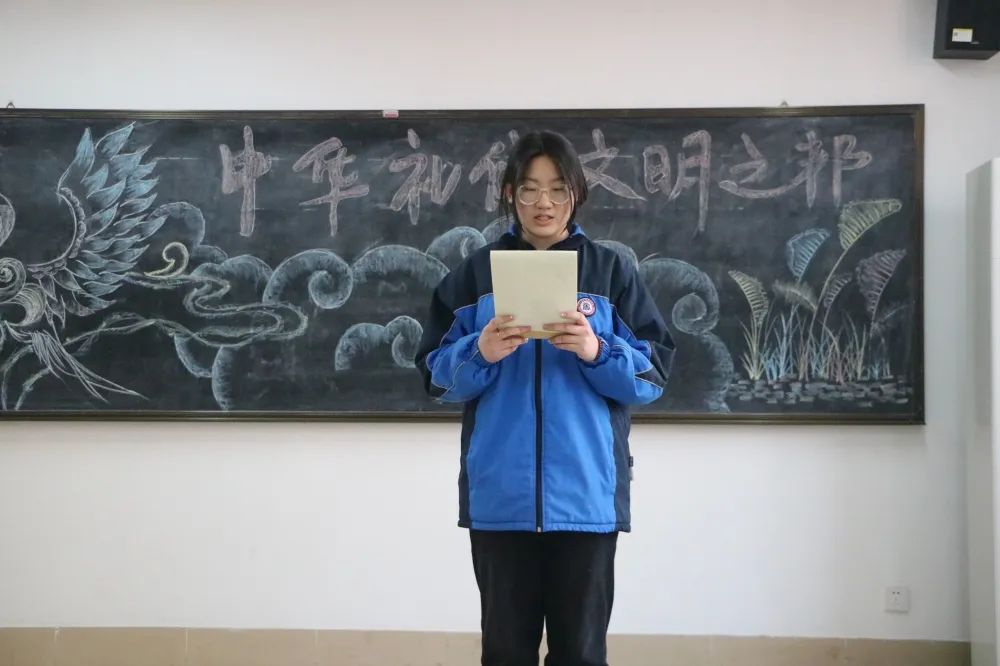 中华礼文明之邦